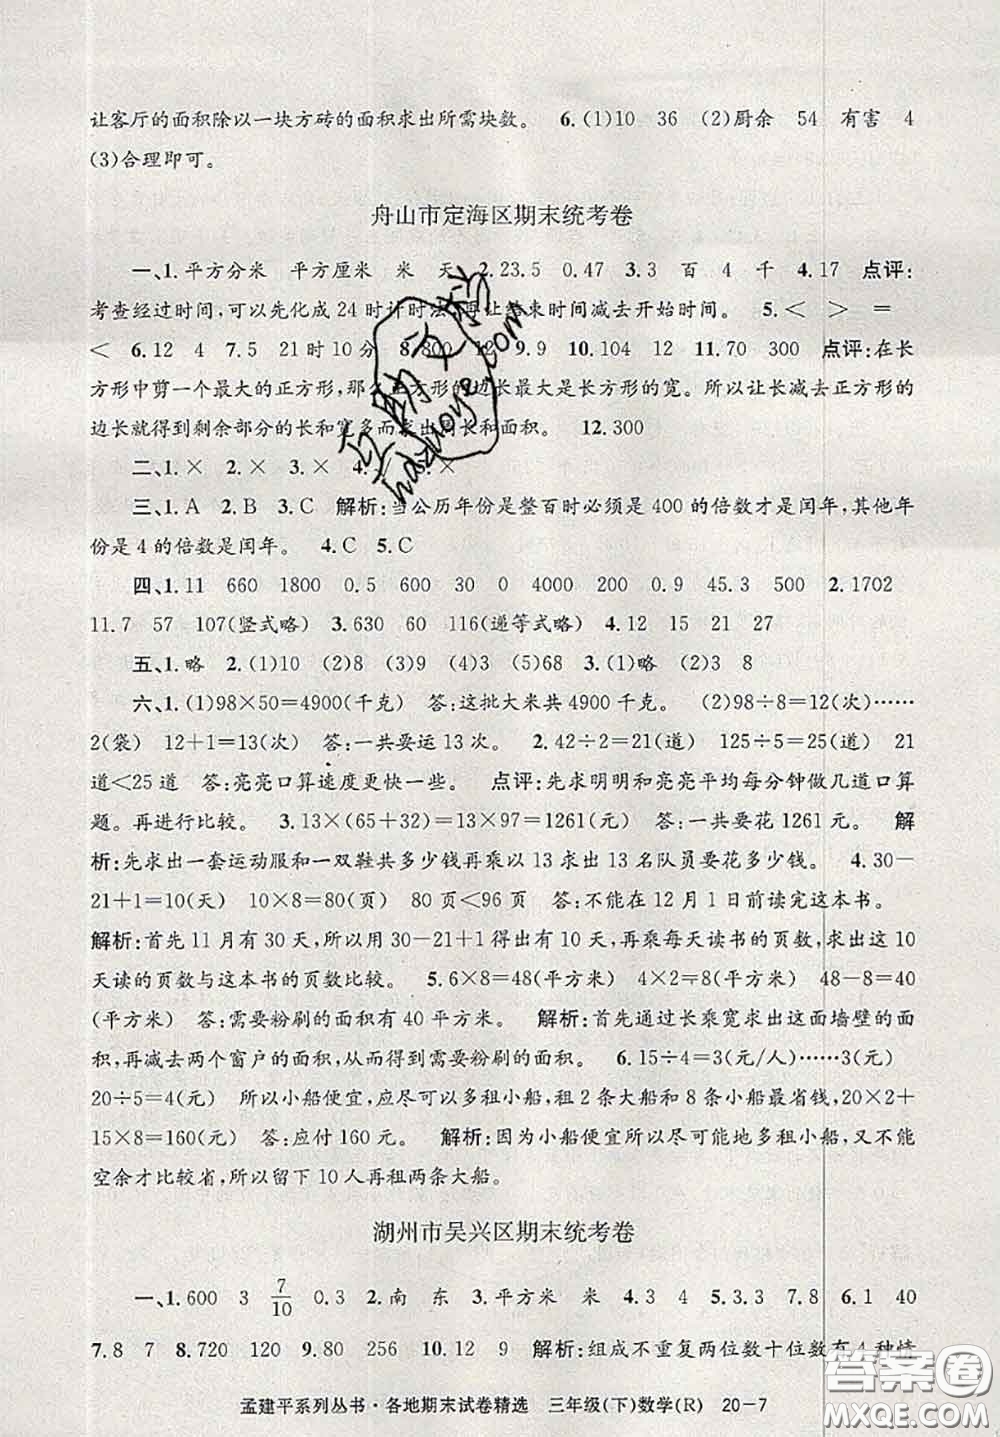 让客厅的面积除以一块方砖的面积求出所需块数。 6.(1)10 36 (2)厨余 54 有害 4
(3)合理即可。
舟山市定海区期末统考卷
一、1.平方分米 平方厘米 米 天 2.23.5 0.47 3.3 百 4 千 4.17 点评:
考查经过时间,可以先化成24时计时法,再让结束时间减去开始时间。 5.< > =
< 6.12 4 7.5 21时10分 8.800 12 9.9 10.104 12 11.70 300 点评:在长
方形中剪一个最大的正方形,那么正方形的边长最大是长方形的宽。所以让长减去正方形的
边长就得到剩余部分的长和宽多而求出周长和面积。 12.300
二、1.× 2.× 3.× 4. 5.×
三、1.A 2.B 3.C 解析:当公历年份是整百时必须是400的倍数才是闰年,其他年
份是4的倍数是闰年。 4.C 5.C
四、1.11 660 1800 0.5 600 30 0 4000 200 0.9 45.3 500 2.1702
11.7 57 107(竖式略) 3.630 60 116(递等式略) 4.12 15 21 27
五、1.略 2.(1)10 (2)8 (3)9 (4)3 (5)68 3.(1)略 (2)3 8
六、1.(1)98×50=4900(千克) 答:这批大米共4900千克。 (2)98÷8=12(次)……
2(袋) 12+1=13(次) 答:一共要运13次。 2.42÷2=21(道) 125÷5=25(道) 21
道<25道 答:亮亮口算速度更快一些。 点评:先求明明和亮亮平均每分钟做几道口算
题。再进行比较。 3.13×(65+32)=13×97=1261(元) 答:一共要花1261元。 解
析:先求出一套运动服和一双鞋共多少钱再乘以13求出13名队员要花多少钱。 4.30-
21+1=10(天) 10×8=80(页) 80页<96页 答:不能在12月1日前读完这本书。
解析:首先11月有30天,所以用30-21+1得出有10天,再乘每天读书的页数,求出这10
天读的页数与这本书的页数比较。 5.6×8=48(平方米) 4×2=8(平方米) 48-8=40
(平方米) 答:需要粉刷的面积有40平方米。 解析:首先通过长乘宽求出这面墙壁的面
积,再减去两个窗户的面积,从而得到需要粉刷的面积。 6.15÷4=3(元/人)……3(元)
20÷5=4(元) 所以小船便宜,应尽可能多租小船,租2条大船和8条小船最省钱,20×2+
15×8=160(元) 答:应付160元。 解析:因为小船便宜所以尽可能地多租小船,又不能
空余才比较省,所以留下10人再租两条大船。
湖州市吴兴区期末统考卷
一、1.600 3 7/10 0.3 2.南 东 3.平方米 米 4.3 4 5.3.3 7.8 6.1 40
7.8 7 8.720 120 9.80 256 10.12 9 解析:组成不重复两位数十位数有4种情
孟建平系列丛书·各地期末试卷精选 三年级(下)数学(R) 20-7
答案圈
MXQE.COM